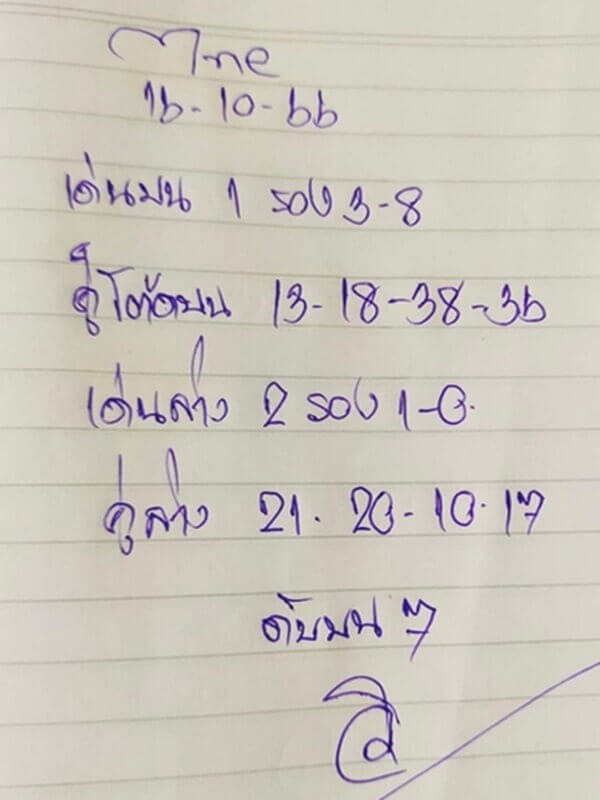 ไทย
16-10-66
เด่นบน 1 รอง 3-8
คู่โต๊ดบน 13-18-38-36
เด่นล่าง 2 รอง 1-0.
คู่ล่าง 21. 20-10.17
ดับบน 7